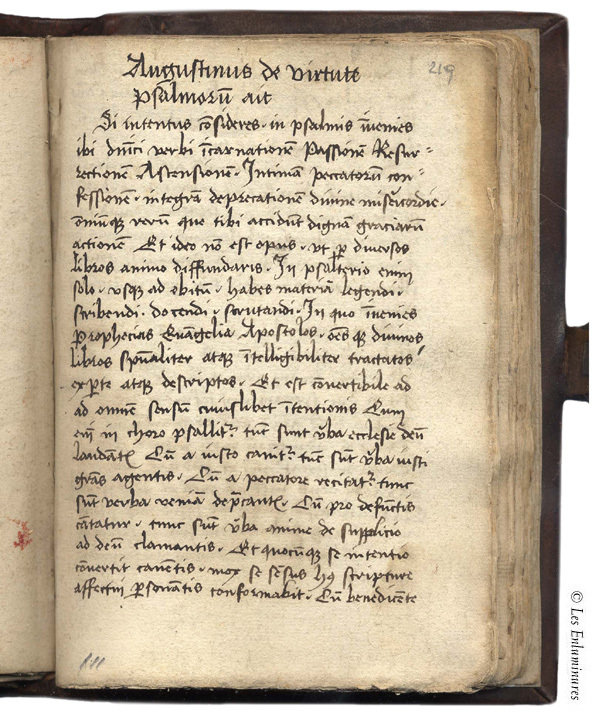 Augustinus de virtute
psalmorū ait
219
Si intentus cōsideres · in psalmis īvenies
ibi dn̄ici verbi īcarnationem Passionem Resur-
rectionem Ascensionem · Intimam peccatorū con-
fessionem · integrā deprecationem divine misericordie ·
omniūqꝫ rerum que tibi accidūt dignam graciarū
actionem Et ideo nō est opus · vt ꝑ diversos
libros animo diffundaris · In psalterio enim
solo · vsqꝫ ad obitum · habes materiā legendi ·
scribendi · docendi · scrutandi · In quo īvenies
Prophecias Evāgelia Apostolos · oēs qꝫ divinos
libros spūaliter atqꝫ ītelligibiliter tractatos
ex ꝑte atqꝫ descriptos · Et est cōvertibile ad
ad omnem sensum cuiuslibet ītentionis Cum
em̄ in choro psallitr̄ tūc sunt v̄ba ecclesie deū
laudātꝭ Cū a iusto canitr̄ tūc sūt v̄ba iusti
grās agentis · Cū a peccatore recitatr̄ tunc
sūt verba veniam dep̄cantꝭ · Cū pro defunctis
cātatur · tunc sūt v̄ba anime de supplicio
ad deū clamantis · Et quocūqꝫ se intentio
cōvertit canētis · mox se sēsus hꝰ scripture
affectui ꝑsonātis conformabit · Cū benedicēte
© Les Enluminures